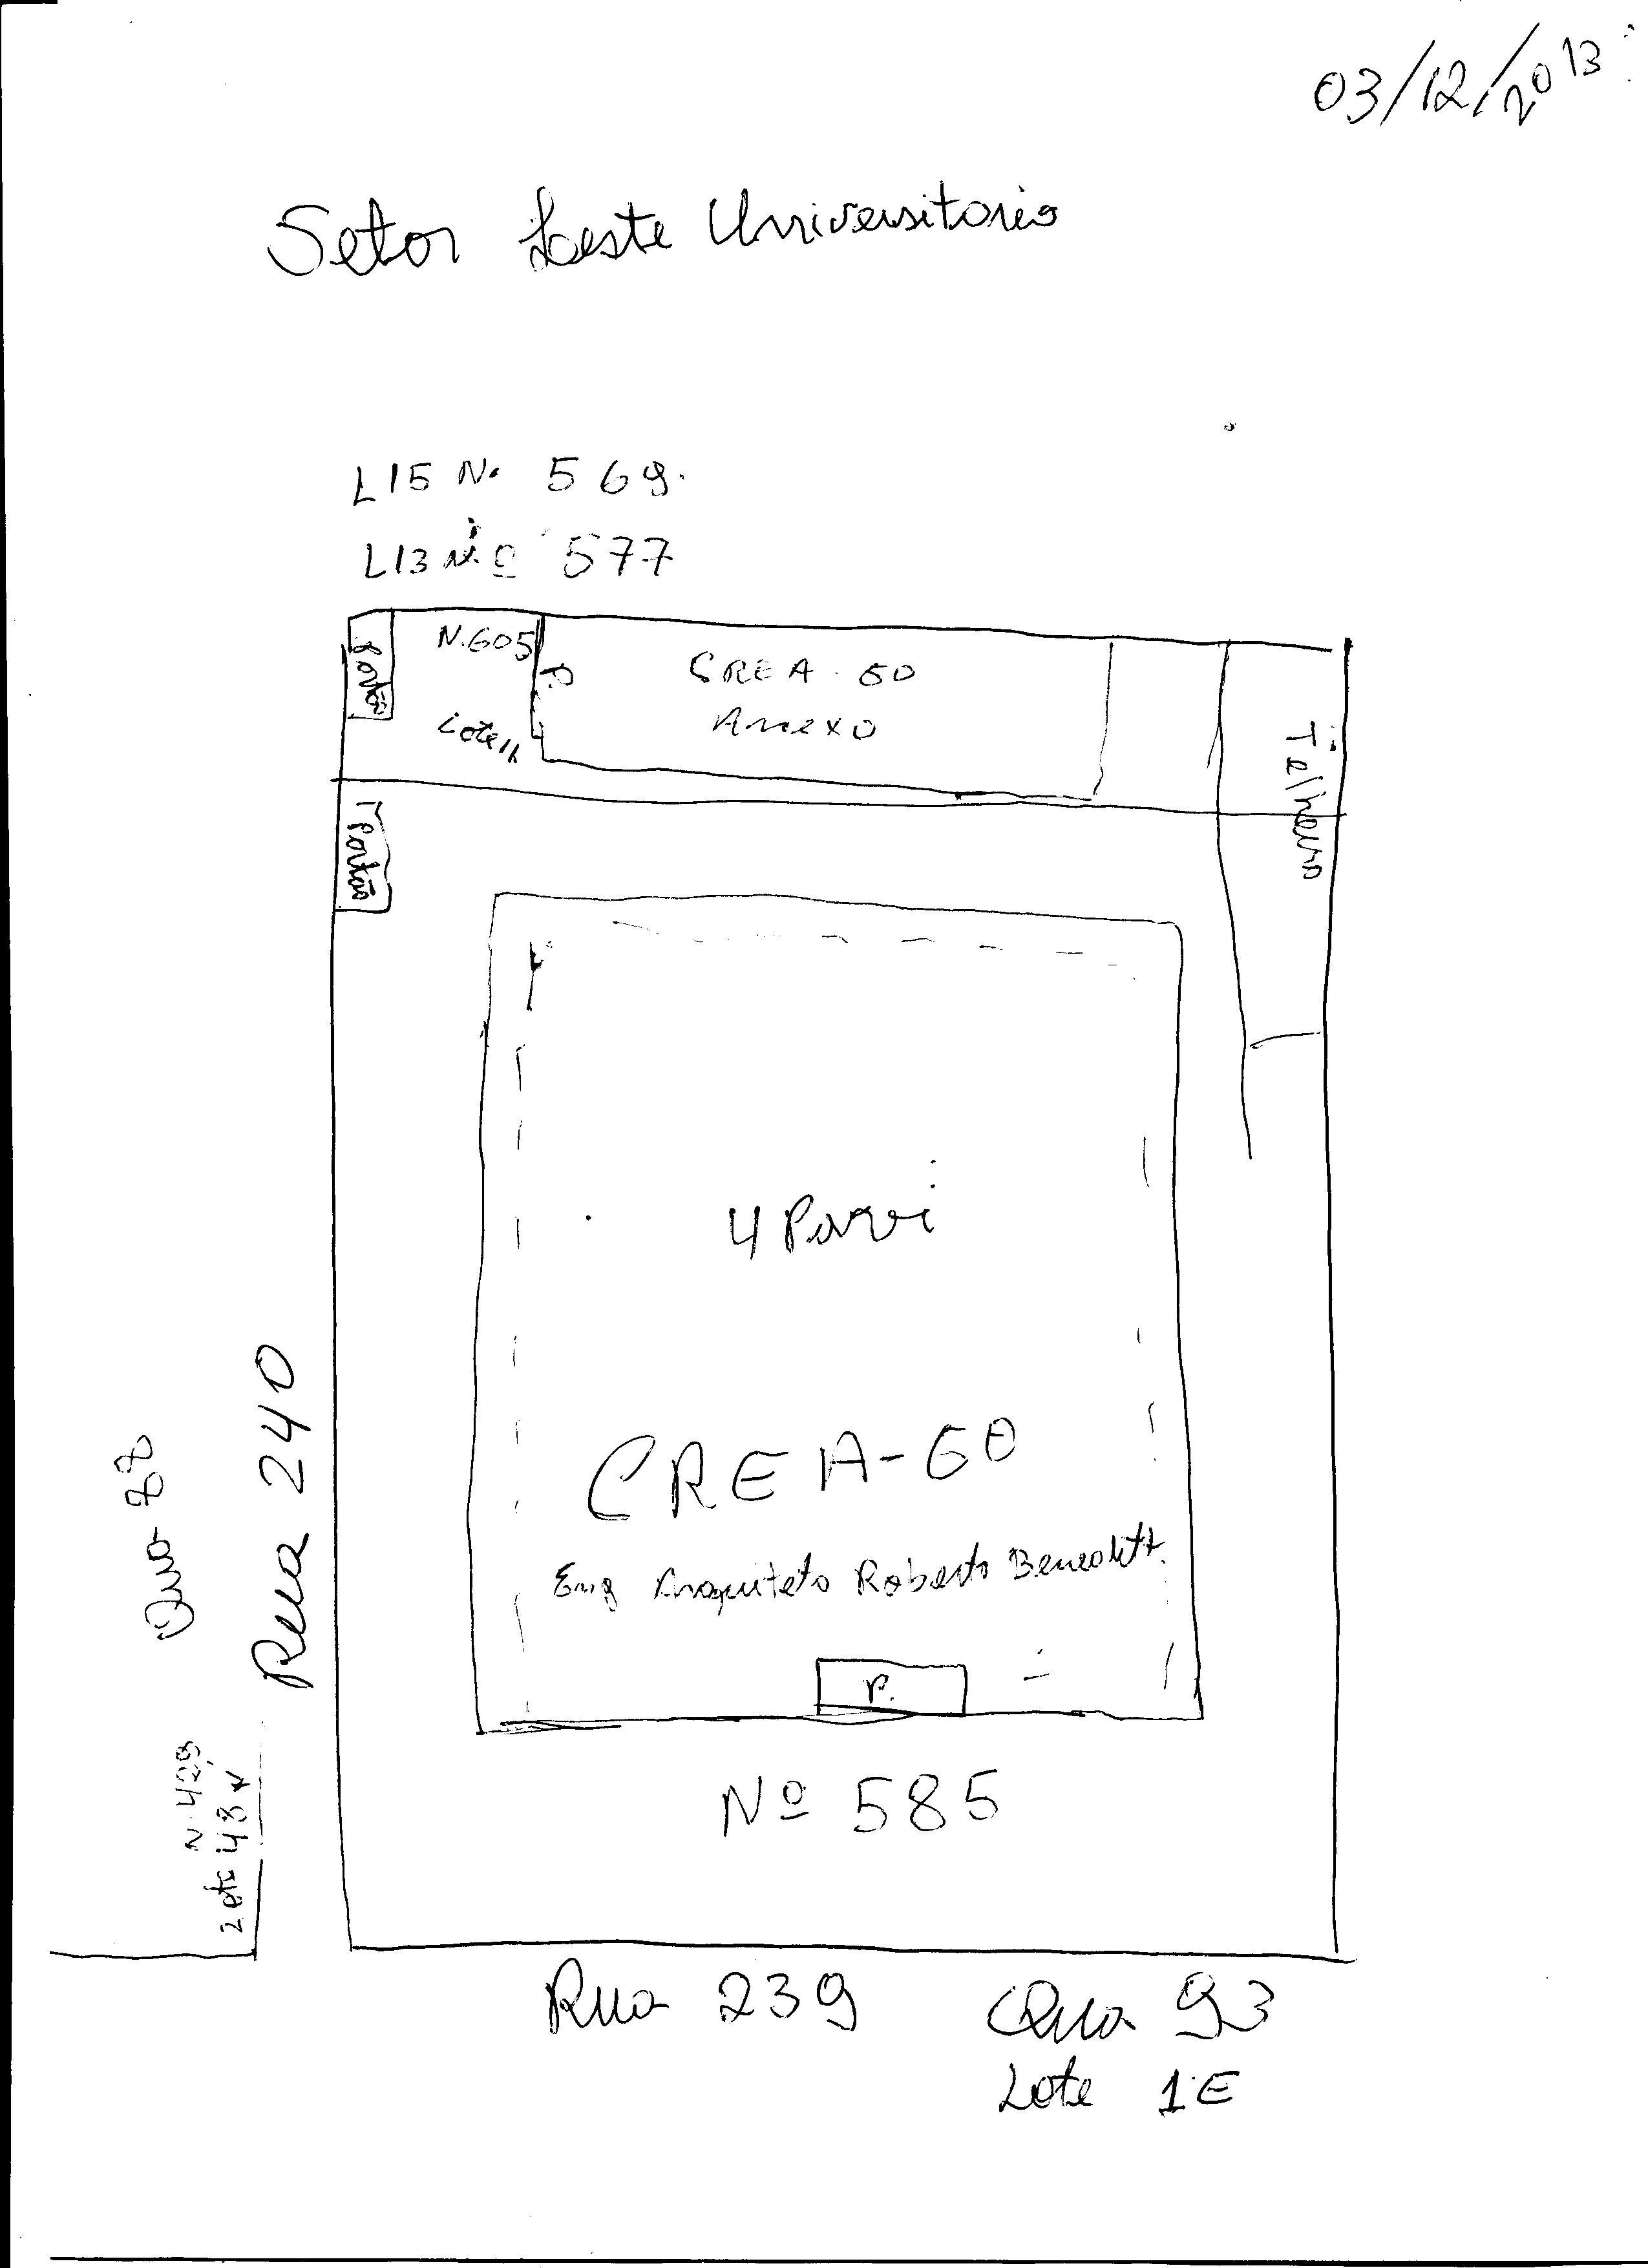 03/12/2013
Setor Leste Universitorio
L15 N. 569.
L13 Nº 577
Portão
N.605
Lote 11
P.
CREA-GO
Anexo
Telheiro
Portão
4 Pavi
CREA-GO
Eng Arquiteto Roberto Benedett.
P.
Nº 585
Rua 240
Qua
N. 429
Rua 239 Qua 93
Lote 1E